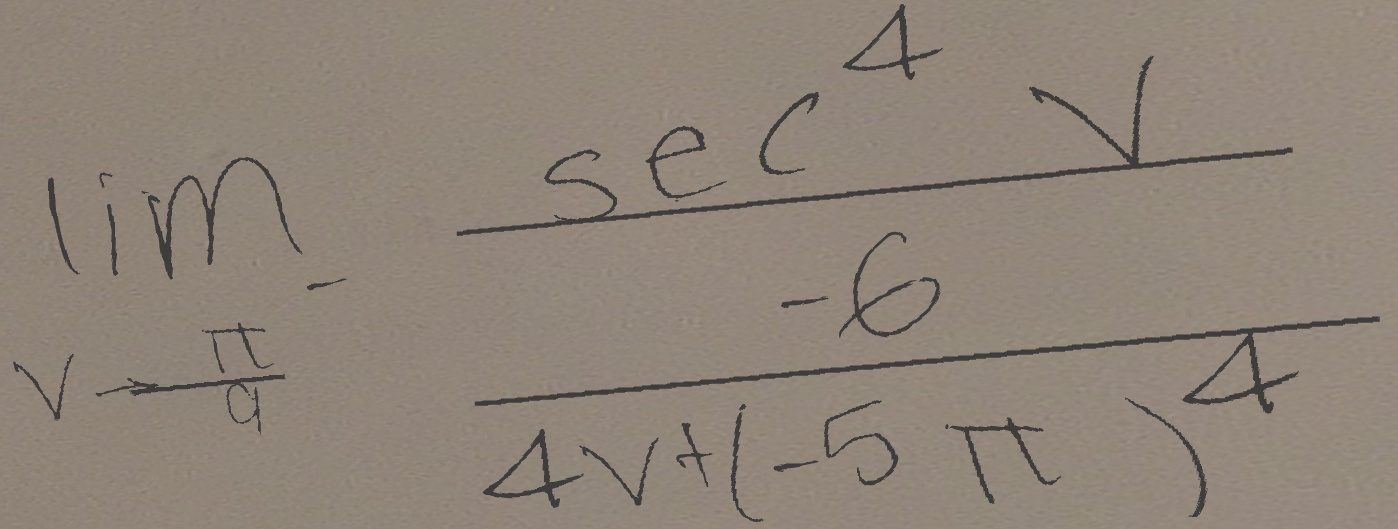 \lim_{v \to \frac{\pi}{9}^{-}} \frac{\sec^{4} v}{\frac{-6}{4v+(-5\pi)^{4}}}